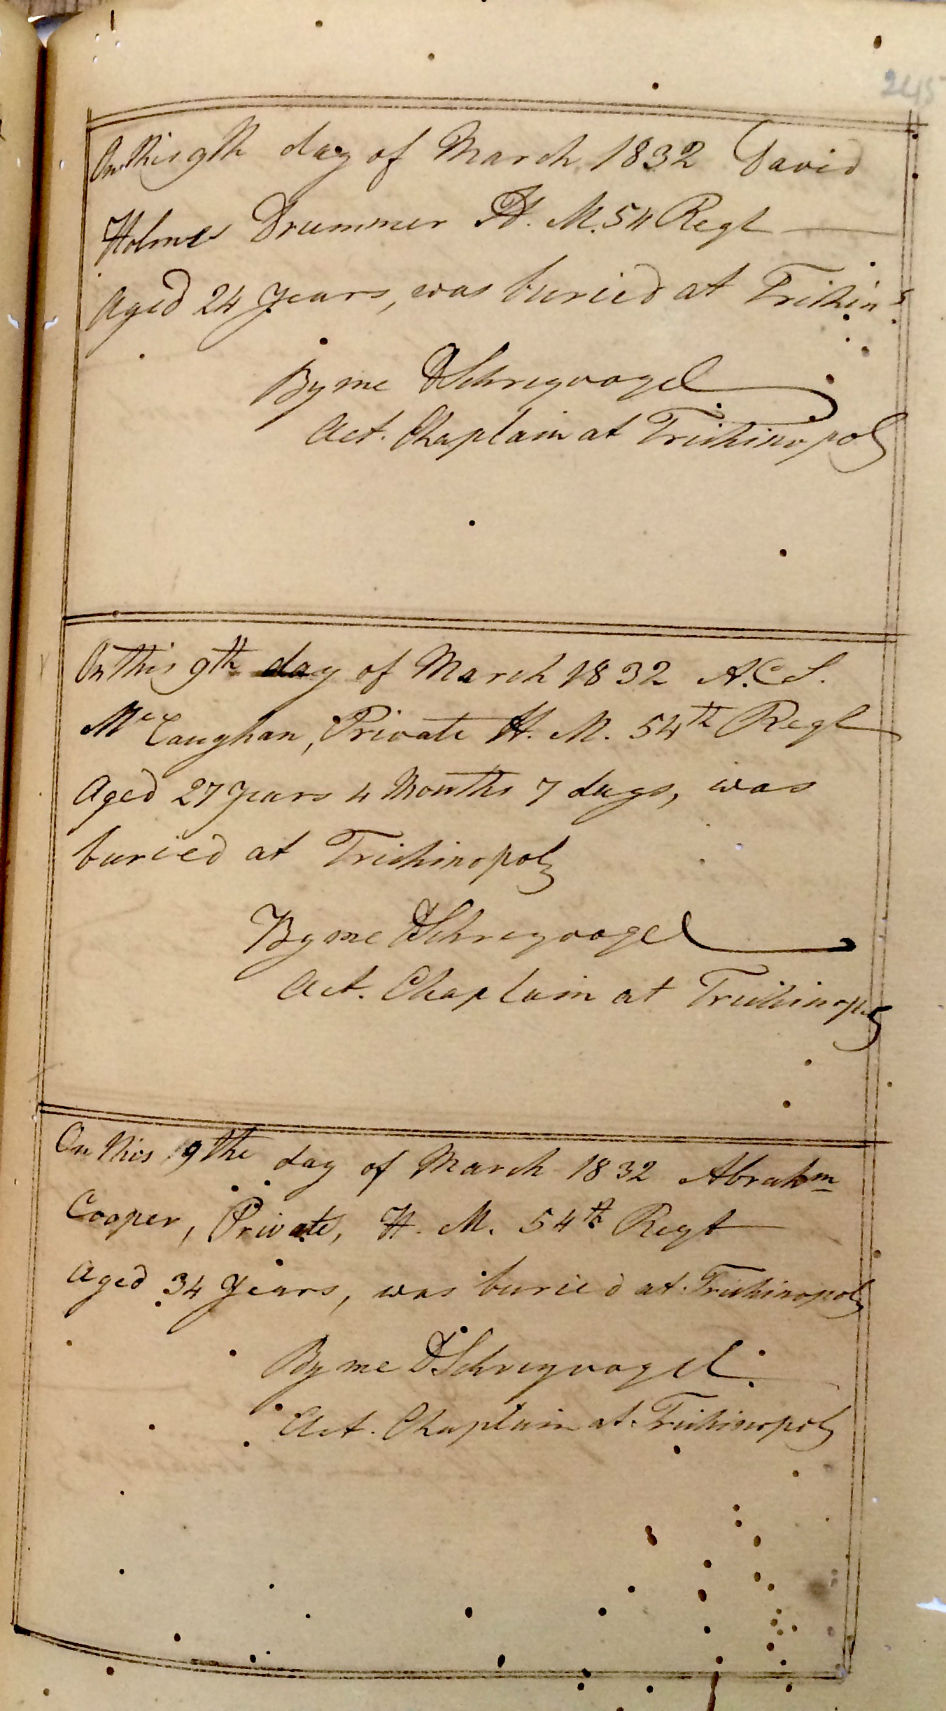 245
On this 9th day of March 1832 David
Holmes Drummer H. M. 54 Regt
Aged 24 Years, was buried at Trichin
By me DSchreyvogel
Act. Chaplain at Trichinopoly
On this 9th day of March 1832 A.C.S.
McCaughan, Private H. M. 54th Regt
Aged 27 Years 4 Months 7 days, was
buried at Trichinopoly
By me DSchreyvogel
Act. Chaplain at Trichinopoly
On this 9 the day of March 1832 Abrahm
Cooper, Private, H. M. 54th Regt
Aged 34 Years, was buried at Trichinopoly
By me DSchreyvogel.
Act. Chaplain at Trichinopoly